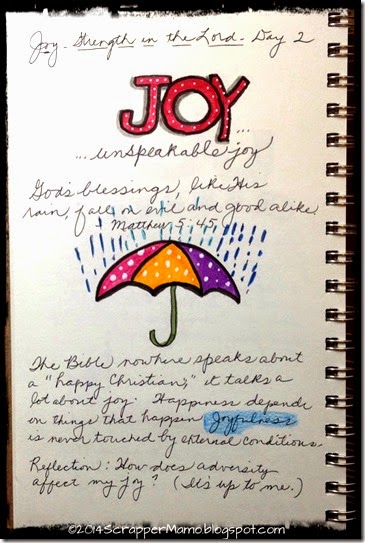 Joy - Strength in the Lord - Day 2
JOY...
...unspeakable joy
God's blessings, like His
rain, fall on evil and good alike.
Matthew 5:45
The Bible nowhere speaks about
a "happy Christian," it talks a
lot about joy. Happiness depends
on things that happen. Joyfulness
is never touched by external conditions.
Reflection: How does adversity
affect my joy? (It's up to me.)
©2014ScrapperMamo.blogspot.com